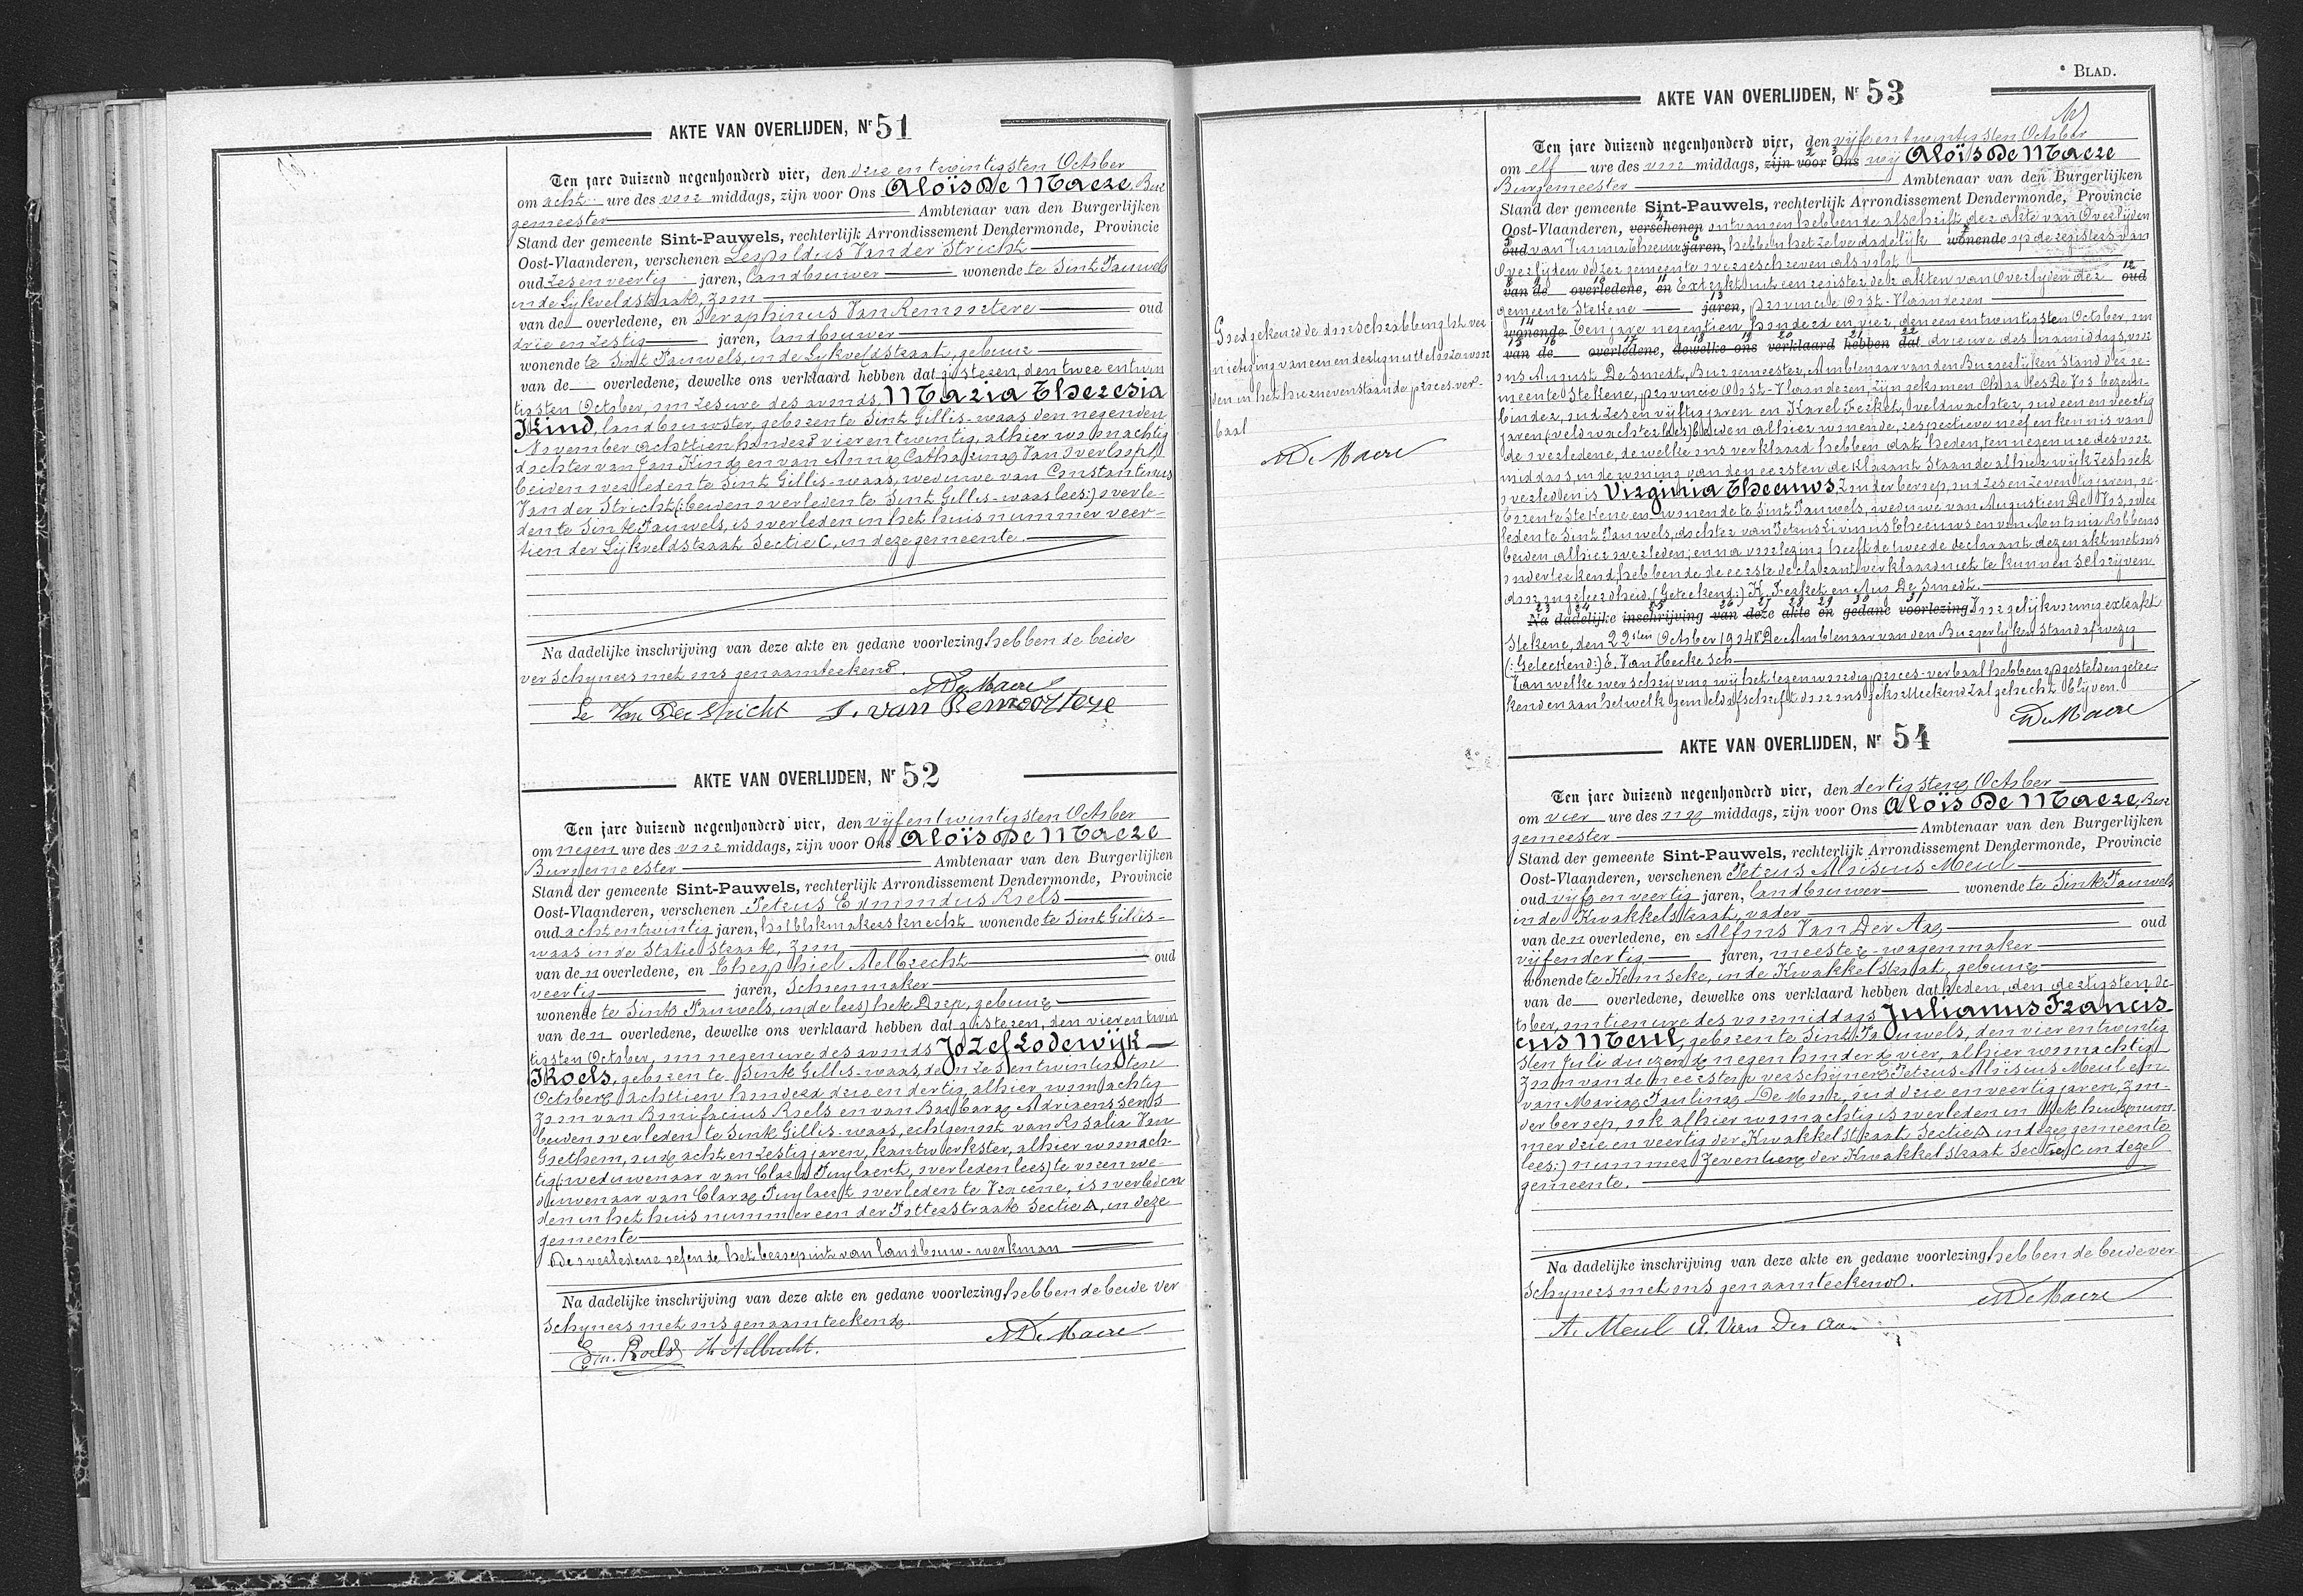 AKTE VAN OVERLIJDEN, Nr 51
Ten jare duizend negenhonderd vier, den drie en twintigsten October
om acht ure des voor middags, zijn voor Ons Aloïs De Maere, Bur
gemeester Ambtenaar van den Burgerlijken
Stand der gemeente Sint-Pauwels, rechterlijk Arrondissement Dendermonde, Provincie
Oost-Vlaanderen, verschenen Leopoldus Vander Stricht
oud zes en veertig jaren, landbouwer wonende te Sint Pauwels
in de Lijkveldstraat, zoon
van de overledene, en Seraphinus Van Remoortere oud
drie en zestig jaren, landbouwer
wonende te Sint Pauwels, in de Lijkveldstraat, gebuur
van de overledene, dewelke ons verklaard hebben dat gisteren, den twee en twin
tigsten October, om zes ure des avonds, Maria Theresia
Kind, landbouwster, geboren te Sint Gillis-waas den negenden
November achttien honderd vier en twintig, alhier woonachtig
dochter van Jan Kind en van Anna Catharina Van Overloop
beiden overleden te Sint Gillis-waas, weduwe van Constantinus
Van der Stricht (beiden overleden te Sint Gillis-waas lees:) overle-
den te Sint Pauwels, is overleden in het huis nummer veer-
tien der Lijkveldstraat Sectie C, in deze gemeente.
Na dadelijke inschrijving van deze akte en gedane voorlezing hebben de beide
verschijners met ons genaamteekend.
A De Maere
Le Van Der Stricht S. van Remoortere
AKTE VAN OVERLIJDEN, Nr 52
Ten jare duizend negenhonderd vier, den vijf en twintigsten October
om negen ure des voor middags, zijn voor Ons Aloïs De Maere
Burgemeester Ambtenaar van den Burgerlijken
Stand der gemeente Sint-Pauwels, rechterlijk Arrondissement Dendermonde, Provincie
Oost-Vlaanderen, verschenen Petrus Edmondus Roels
oud acht en twintig jaren, holblokmakersknecht wonende te Sint Gillis-
waas in de Statiestraat, zoon
van den overledene, en Theophiel Aelbrecht oud
veertig jaren, schoenmaker
wonende te Sint Pauwels, in de lees) het Dorp, gebuur
van den overledene, dewelke ons verklaard hebben dat gisteren, den vier en twin
tigsten October, om negen ure des avonds Jozef Lodewijk
Roels, geboren te Sint Gillis-waas, den zes en twintigsten
October achttien honderd drie en dertig, alhier woonachtig
zoon van Bonifacius Roels en van Barbara Adriaenssens
beiden overleden te Sint Gillis-waas, echtgenoot van Rosalia Van
Goethem, oud acht en zestig jaren, kantwerkster, alhier woonach-
tig (weduwenaar van Clara Puylaert, overleden lees) te voren we-
duwenaar van Clara Puylaert overleden te Vracene, is overleden
den in het huis nummer een der Potterstraat Sectie A, in deze
gemeente
De overledene oefende het beroep uit van landbouw-werkman
Na dadelijke inschrijving van deze akte en gedane voorlezing hebben de beide ver
schijners met ons genaamteekend.
A De Maere
Em. Roels Th Aelbrecht.
BLAD.
AKTE VAN OVERLIJDEN, Nr 53
Goedgekeurd de doorschrabbing tot ver
nietiging van een en dertig nutteloze woor
den in het hiernevenstaande proces-ver-
baal
A De Maere
Ten jare duizend negenhonderd vier, den vijf en twintigsten October
om elf ure des voor middags, zijn voor Ons wij Aloïs De Maere
Burgemeester Ambtenaar van den Burgerlijken
Stand der gemeente Sint-Pauwels, rechterlijk Arrondissement Dendermonde, Provincie
Oost-Vlaanderen, verschenen ontvangen hebbende afschrift der akte van Overlijden
oud van Virginia Theeuws jaren, hebben hetzelve dadelijk wonende op de registers van
Overlijden dezer gemeente overgeschreven als volgt
van de overledene, en Extrakt uit een register der akten van Overlijden der oud
gemeente Stekene jaren, provincie Oost-Vlaanderen
wonende Ten jare negentien honderd en vier, den een en twintigsten October, om
van de overledene, dewelke ons verklaard hebben dat drie ure des namiddags, voor
ons August De Smedt, Burgemeester, Ambtenaar van den Burgerlijken Stand der ge-
meente Stekene, provincie Oost-Vlaanderen, zijn gekomen Charles De Vos bezem-
binder, oud zes en vijftig jaren en Karel Ferket, veldwachter, oud een en veertig
jaren (veldwachter lees) beiden alhier wonende, respectieve neef en kennis van
de overledene, dewelke ons verklaard hebben dat heden, ten negen ure des voor
middags, in de woning van den eersten deklarant staande alhier wijk Zeshoek
overleden is Virginia Theeuws, zonder beroep, oud zes en zeventig jaren, ge-
boren te Stekene en wonende te Sint Pauwels, weduwe van Augustien De Vos, over
leden te Sint Pauwels, dochter van Petrus Livinus Theeuws en van Antonia Robbens
beiden alhier overleden; en na voorlezing heeft de tweede declarant dezen akt met ons
onderteekend, hebbende de eerste declarant verklaard niet te kunnen schrijven
door ongeleerdheid. (Geteekend:) K. Ferket en Aug De Smedt.
Na dadelijke inschrijving van deze akte en gedane voorlezing Voor gelijkvormig extrakt
Stekene, den 22sten October 1904. De Ambtenaar van den Burgerlijken Stand afwezig
(:Geteekend:) E. Van Hecke sch
Van welke overschrijving wij het tegenwoordig proces-verbaal hebben opgesteld en getee-
kend en aan hetwelk gemeld afschrift door ons gekotteekend zal gehecht blijven.
A De Maere
AKTE VAN OVERLIJDEN, Nr 54
Ten jare duizend negenhonderd vier, den dertigsten October
om vier ure des na middags, zijn voor Ons Aloïs De Maere, Bur
gemeester Ambtenaar van den Burgerlijken
Stand der gemeente Sint-Pauwels, rechterlijk Arrondissement Dendermonde, Provincie
Oost-Vlaanderen, verschenen Petrus Aloïsius Meul
oud vijf en veertig jaren, landbouwer wonende te Sint Pauwels
in de Kwakkelstraat, vader
van den overledene, en Alfons Van Der Aa oud
vijf en dertig jaren, meester-wagenmaker
wonende te Kemseke, in de Kwakkelstraat, gebuur
van de overledene, dewelke ons verklaard hebben dat heden, den dertigsten Oc-
tober, om tien ure des voormiddags Julianus Francis-
cus Meul, geboren te Sint Pauwels, den vier en twintig
sten Juli duizend negen honderd vier, alhier woonachtig
zoon van de(n eersten) verschijner Petrus Aloïsius Meul en
van Maria Paulina De Mone, oud drie en veertig jaren, zon-
der beroep, ook alhier woonachtig is overleden in het huis num-
mer drie en veertig der Kwakkelstraat Sectie A in deze gemeente
lees:) nummer zeventien der Kwakkelstraat Sectie C in dezel
gemeente.
Na dadelijke inschrijving van deze akte en gedane voorlezing hebben de beide ver
schijners met ons genaamteekend.
A De Maere
A. Meul A. Van Der Aa